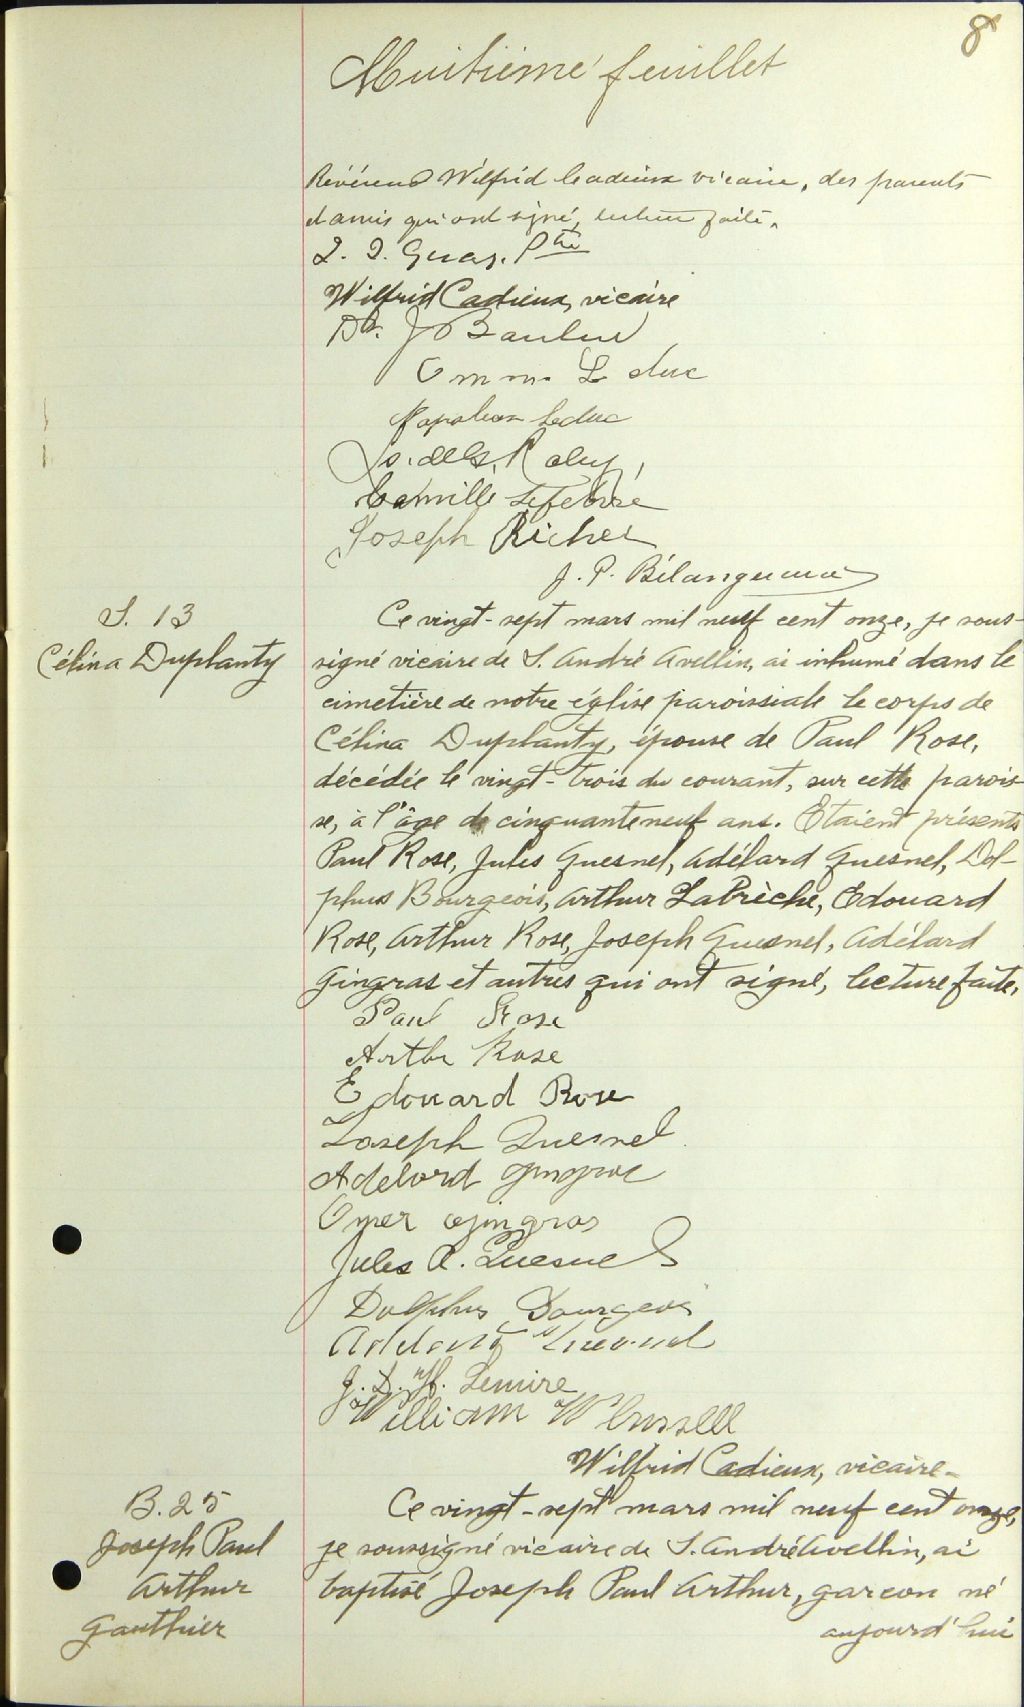 8
Huitième feuillet
Révérend Wilfrid Cadieux vicaire, des parents
et amis qui ont signé, lecture faite.
Ptre
Wilfrid Cadieux, vicaire
Dr. J
Omm. Leduc
Napoleon Leduc
Camille Lefebvre
Joseph Richer
J. P. Bélanger curé
S. 13
Célina Duplanty
Ce vingt-sept mars mil neuf cent onze, je sous-
signé vicaire de S. André Avellin, ai inhumé dans le
cimetière de notre église paroissiale le corps de
Célina Duplanty, épouse de Paul Rose,
décédée le vingt-trois du courant, sur cette parois-
se, à l'âge de cinquante neuf ans. Etaient présents
Paul Rose, Jules Quesnel, Adélard Quesnel, Dol-
phus Bourgeois, Arthur Labrèche, Edouard
Rose, Arthur Rose, Joseph Quesnel, Adélard
Gingras et autres qui ont signé, lecture faite.
Paul Rose
Arthur Rose
Edouard Rose
Joseph Quesnel
Adelard Gingras
Omer Gingras
Jules A. Quesnel
Dolphus Bourgeois
Adelard Quesnel
J. D. H. Lemire
William W
Wilfrid Cadieux, vicaire-
B. 25
Joseph Paul
Arthur
Gauthier
Ce vingt-sept mars mil neuf cent onze,
je soussigné vicaire de S. André Avellin, ai
baptisé Joseph Paul Arthur, garcon né
aujourd'hui